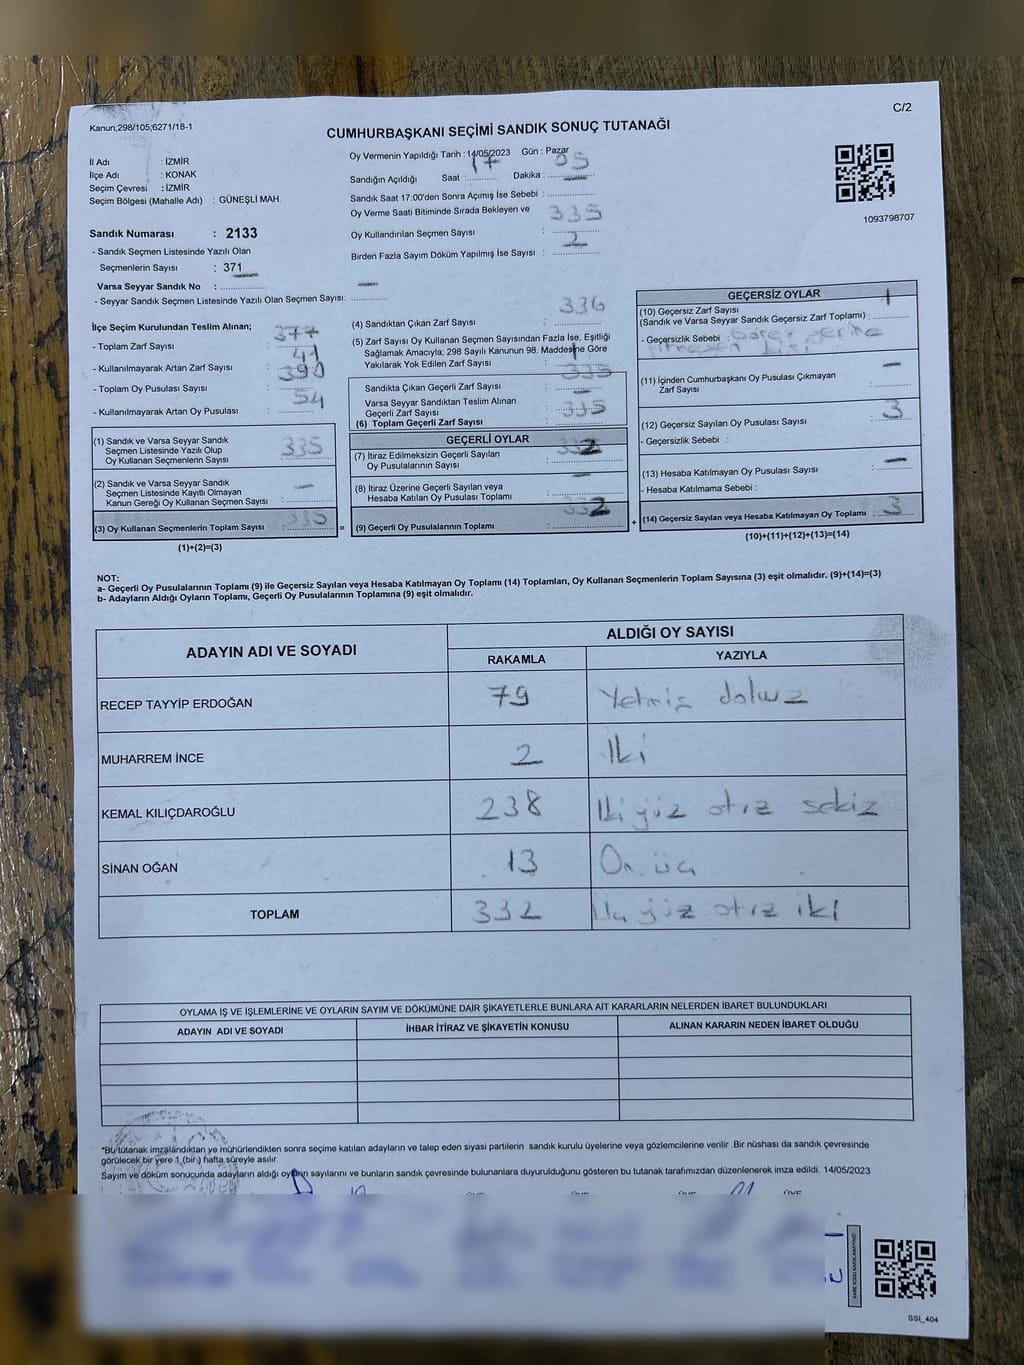 C/2
Kanun;298/105;6271/18-1
CUMHURBAŞKANI SEÇİMİ SANDIK SONUÇ TUTANAĞI
İl Adı : İZMİR
İlçe Adı : KONAK
Seçim Çevresi : İZMİR
Seçim Bölgesi (Mahalle Adı) : GÜNEŞLİ MAH.
Sandık Numarası : 2133
- Sandık Seçmen Listesinde Yazılı Olan
Seçmenlerin Sayısı : 371
Varsa Seyyar Sandık No : —
- Seyyar Sandık Seçmen Listesinde Yazılı Olan Seçmen Sayısı:
Oy Vermenin Yapıldığı Tarih : 14/05/2023 Gün : Pazar
Sandığın Açıldığı Saat : 17 Dakika : 05
Sandık Saat 17:00'den Sonra Açımış İse Sebebi :
Oy Verme Saati Bitiminde Sırada Bekleyen ve
Oy Kullandırılan Seçmen Sayısı : 335
Birden Fazla Sayım Döküm Yapılmış İse Sayısı : 2
1093798707
İlçe Seçim Kurulundan Teslim Alınan;
- Toplam Zarf Sayısı : 377
- Kullanılmayarak Artan Zarf Sayısı : 41
- Toplam Oy Pusulası Sayısı : 390
- Kullanılmayarak Artan Oy Pusulası : 54
(1) Sandık ve Varsa Seyyar Sandık
Seçmen Listesinde Yazılı Olup
Oy Kullanan Seçmenlerin Sayısı : 335
(2) Sandık ve Varsa Seyyar Sandık
Seçmen Listesinde Kayıtlı Olmayan
Kanun Gereği Oy Kullanan Seçmen Sayısı : —
(3) Oy Kullanan Seçmenlerin Toplam Sayısı : 335
(1)+(2)=(3)
(4) Sandıktan Çıkan Zarf Sayısı : 336
(5) Zarf Sayısı Oy Kullanan Seçmen Sayısından Fazla İse, Eşitliği
Sağlamak Amacıyla; 298 Sayılı Kanunun 98. Maddesine Göre
Yakılarak Yok Edilen Zarf Sayısı : 1
Sandıkta Çıkan Geçerli Zarf Sayısı : 335
Varsa Seyyar Sandıktan Teslim Alınan
Geçerli Zarf Sayısı : —
(6) Toplam Geçerli Zarf Sayısı : 335
GEÇERLİ OYLAR
(7) İtiraz Edilmeksizin Geçerli Sayılan
Oy Pusulalarının Sayısı : 332
(8) İtiraz Üzerine Geçerli Sayılan veya
Hesaba Katılan Oy Pusulası Toplamı : —
= (9) Geçerli Oy Pusulalarının Toplamı : 332
GEÇERSİZ OYLAR
(10) Geçersiz Zarf Sayısı
(Sandık ve Varsa Seyyar Sandık Geçersiz Zarf Toplamı) : 1
- Geçersizlik Sebebi :
(11) İçinden Cumhurbaşkanı Oy Pusulası Çıkmayan
Zarf Sayısı : —
(12) Geçersiz Sayılan Oy Pusulası Sayısı : 3
- Geçersizlik Sebebi :
(13) Hesaba Katılmayan Oy Pusulası Sayısı : —
- Hesaba Katılmama Sebebi :
+ (14) Geçersiz Sayılan veya Hesaba Katılmayan Oy Toplamı : 3
(10)+(11)+(12)+(13)=(14)
NOT:
a- Geçerli Oy Pusulalarının Toplamı (9) ile Geçersiz Sayılan veya Hesaba Katılmayan Oy Toplamı (14) Toplamları, Oy Kullanan Seçmenlerin Toplam Sayısına (3) eşit olmalıdır. (9)+(14)=(3)
b- Adayların Aldığı Oyların Toplamı, Geçerli Oy Pusulalarının Toplamına (9) eşit olmalıdır.
ADAYIN ADI VE SOYADI
ALDIĞI OY SAYISI
RAKAMLA YAZIYLA
RECEP TAYYİP ERDOĞAN 79 Yetmiş dokuz
MUHARREM İNCE 2 İki
KEMAL KILIÇDAROĞLU 238 İki yüz otuz sekiz
SİNAN OĞAN 13 On üç
TOPLAM 332 Üç yüz otuz iki
OYLAMA İŞ VE İŞLEMLERİNE VE OYLARIN SAYIM VE DÖKÜMÜNE DAİR ŞİKAYETLERLE BUNLARA AİT KARARLARIN NELERDEN İBARET BULUNDUKLARI
ADAYIN ADI VE SOYADI İHBAR İTİRAZ VE ŞİKAYETİN KONUSU ALINAN KARARIN NEDEN İBARET OLDUĞU
*Bu tutanak imzalandıktan ve mühürlendikten sonra seçime katılan adayların ve talep eden siyasi partilerin sandık kurulu üyelerine veya gözlemcilerine verilir .Bir nüshası da sandık çevresinde
görülecek bir yere 1 (bir) hafta süreyle asılır.
Sayım ve döküm sonucunda adayların aldığı oyların sayılarını ve bunların sandık çevresinde bulunanlara duyurulduğunu gösteren bu tutanak tarafımızdan düzenlenerek imza edildi. 14/05/2023
SSİ_404